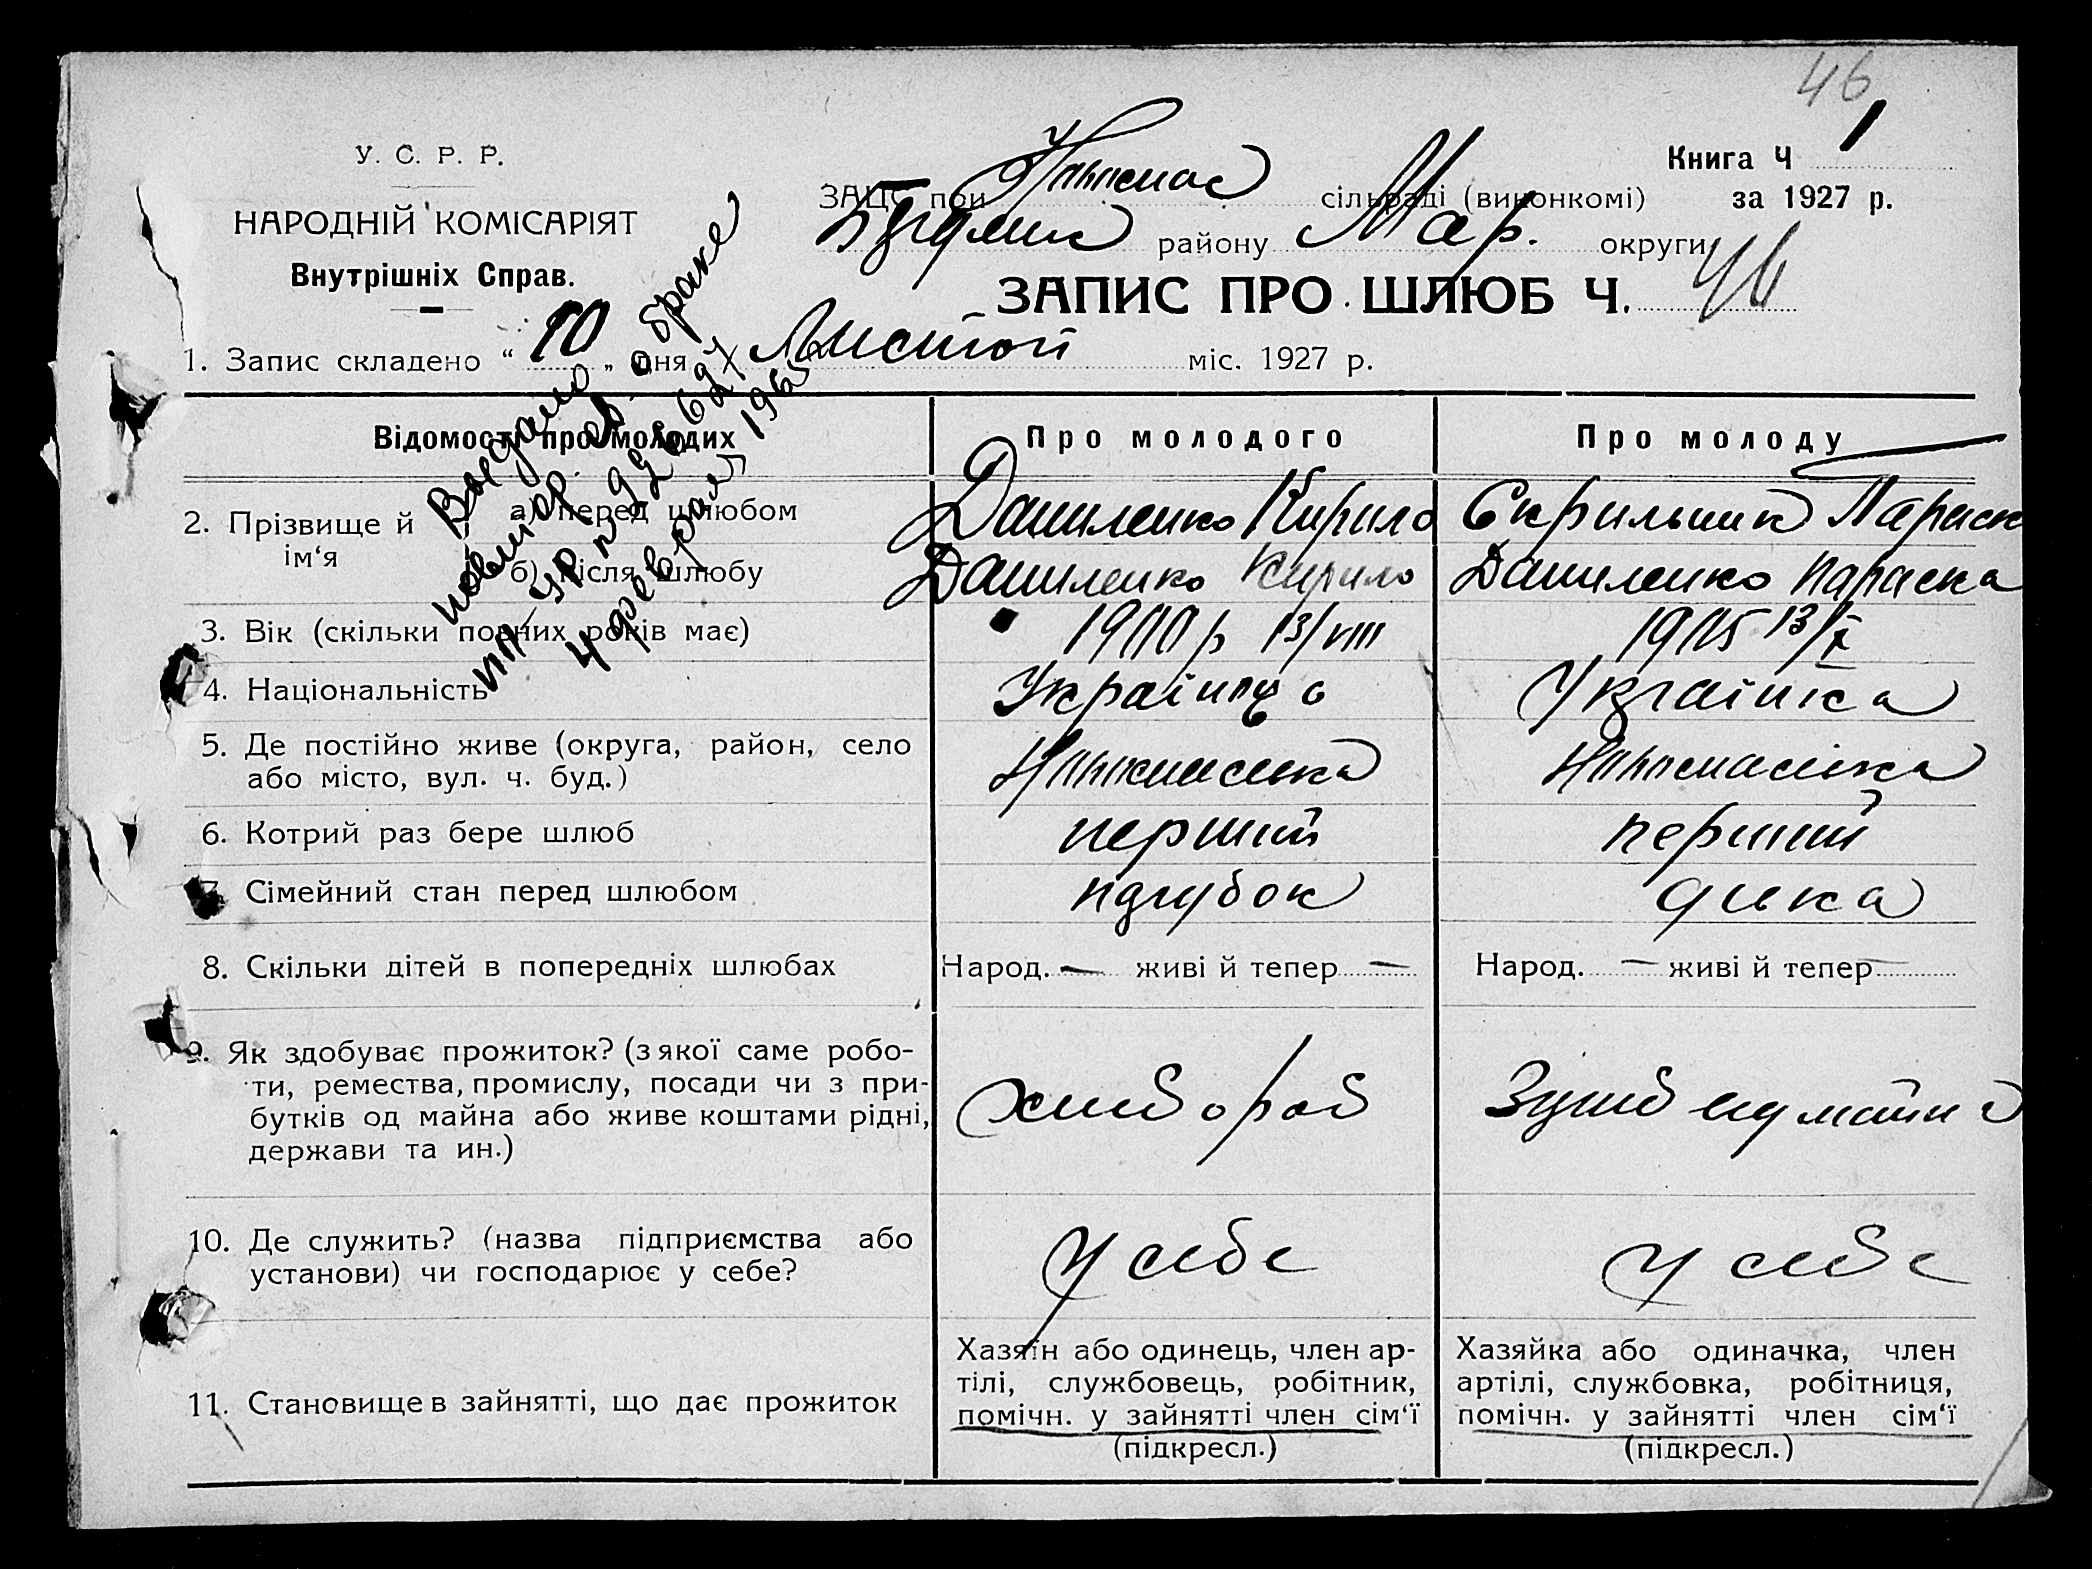 46
У. С. Р. Р.
НАРОДНІЙ КОМІСАРІЯТ
Внутрішніх Справ.
Книга Ч 1
за 1927 р.
ЗАЦС при сільраді (виконкомі)
району Мар. округи
ЗАПИС ПРО ШЛЮБ Ч. 46
1. Запис складено “ 10 „ дня Листоп міс. 1927 р.
Выдано повторн. св. о браке
4 февраля 1965
Відомості про молодих
Про молодого
Про молоду
2. Прізвище й ім‘я
а) перед шлюбом
Даниленко Кирило
Скрильник Параск
б) після шлюбу
Даниленко Кирило
Даниленко Параска
3. Вік (скільки повних років має)
1910 р 13/VIII
1905 13/X
4. Національність
Українць
Українка
5. Де постійно живе (округа, район, село
або місто, вул. ч. буд.)
6. Котрий раз бере шлюб
перший
перший
7. Сімейний стан перед шлюбом
парубок
дівка
8. Скільки дітей в попередніх шлюбах
Народ. — живі й тепер —
Народ. — живі й тепер —
9. Як здобуває прожиток? (з якої саме робо-
ти, ремества, промислу, посади чи з при-
бутків од майна або живе коштами рідні,
держави та ин.)
хлібороб
10. Де служить? (назва підприємства або
установи) чи господарює у себе?
у себе
у себе
11. Становище в зайнятті, що дає прожиток
Хазяїн або одинець, член ар-
тілі, службовець, робітник,
помічн. у зайнятті член сім‘ї
(підкресл.)
Хазяйка або одиначка, член
артілі, службовка, робітниця,
помічн. у зайнятті член сім‘ї
(підкресл.)